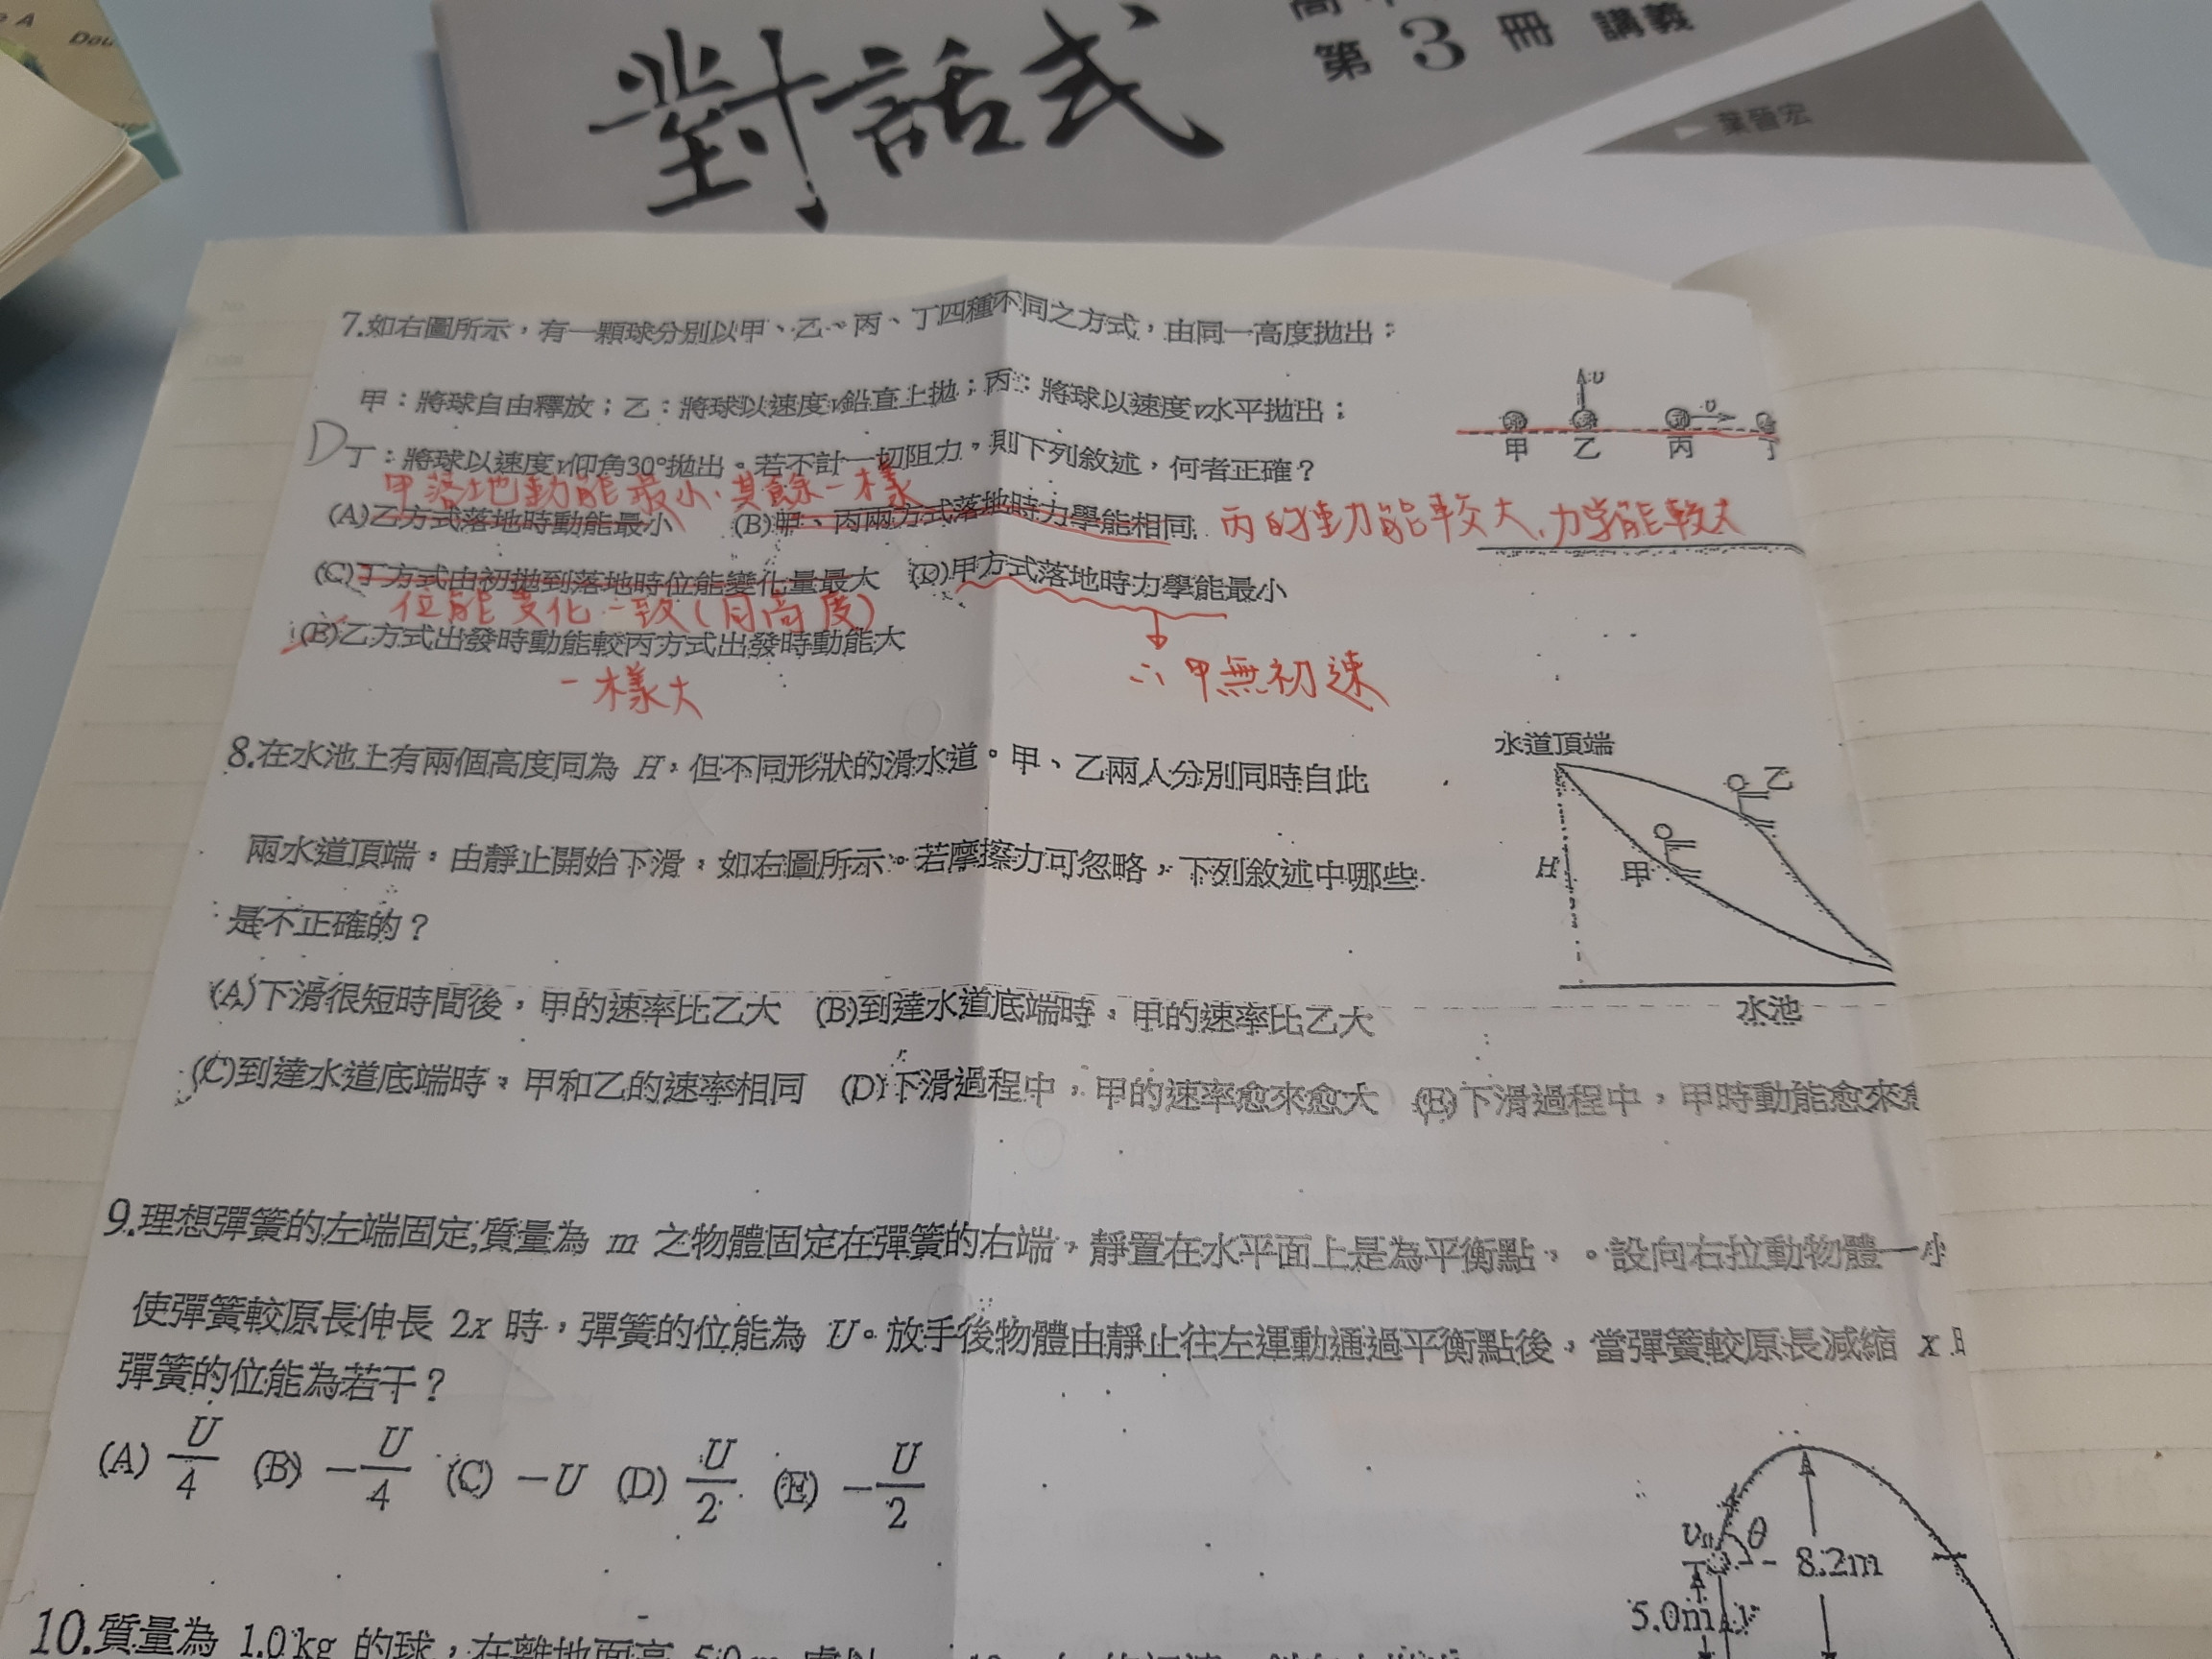 Dau
對話式
第 3 冊 講義
葉晉宏
7.如右圖所示，有一顆球分別以甲、乙、丙、丁四種不同之方式，由同一高度拋出：
甲：將球自由釋放；乙：將球以速度v鉛直上拋；丙：將球以速度v水平拋出；
D丁：將球以速度v仰角30°拋出。若不計一切阻力，則下列敘述，何者正確？
υ
υ
甲 乙 丙 丁
甲落地動能最小,其餘一樣
(A)乙方式落地時動能最小 (B)甲、丙兩方式落地時力學能相同 丙的動能較大,力學能較大
(C)丁方式由初拋到落地時位能變化量最大 (D)甲方式落地時力學能最小
位能變化一致(同高度)
(E)乙方式出發時動能較丙方式出發時動能大
一樣大
∵甲無初速
8.在水池上有兩個高度同為 H，但不同形狀的滑水道。甲、乙兩人分別同時自此
兩水道頂端，由靜止開始下滑，如右圖所示。若摩擦力可忽略，下列敘述中哪些
是不正確的？
水道頂端
乙
H
甲
水池
(A)下滑很短時間後，甲的速率比乙大 (B)到達水道底端時，甲的速率比乙大
(C)到達水道底端時，甲和乙的速率相同 (D)下滑過程中，甲的速率愈來愈大 (E)下滑過程中，甲時動能愈來
9.理想彈簧的左端固定,質量為 m 之物體固定在彈簧的右端，靜置在水平面上是為平衡點，。設向右拉動物體一小
使彈簧較原長伸長 2x 時，彈簧的位能為 U。放手後物體由靜止往左運動通過平衡點後，當彈簧較原長減縮 x
彈簧的位能為若干？
(A) U/4 (B) −U/4 (C) −U (D) U/2 (E) −U/2
θ
8.2m
5.0m
10.質量為 1.0 kg 的球，在離地面高 5.0 m